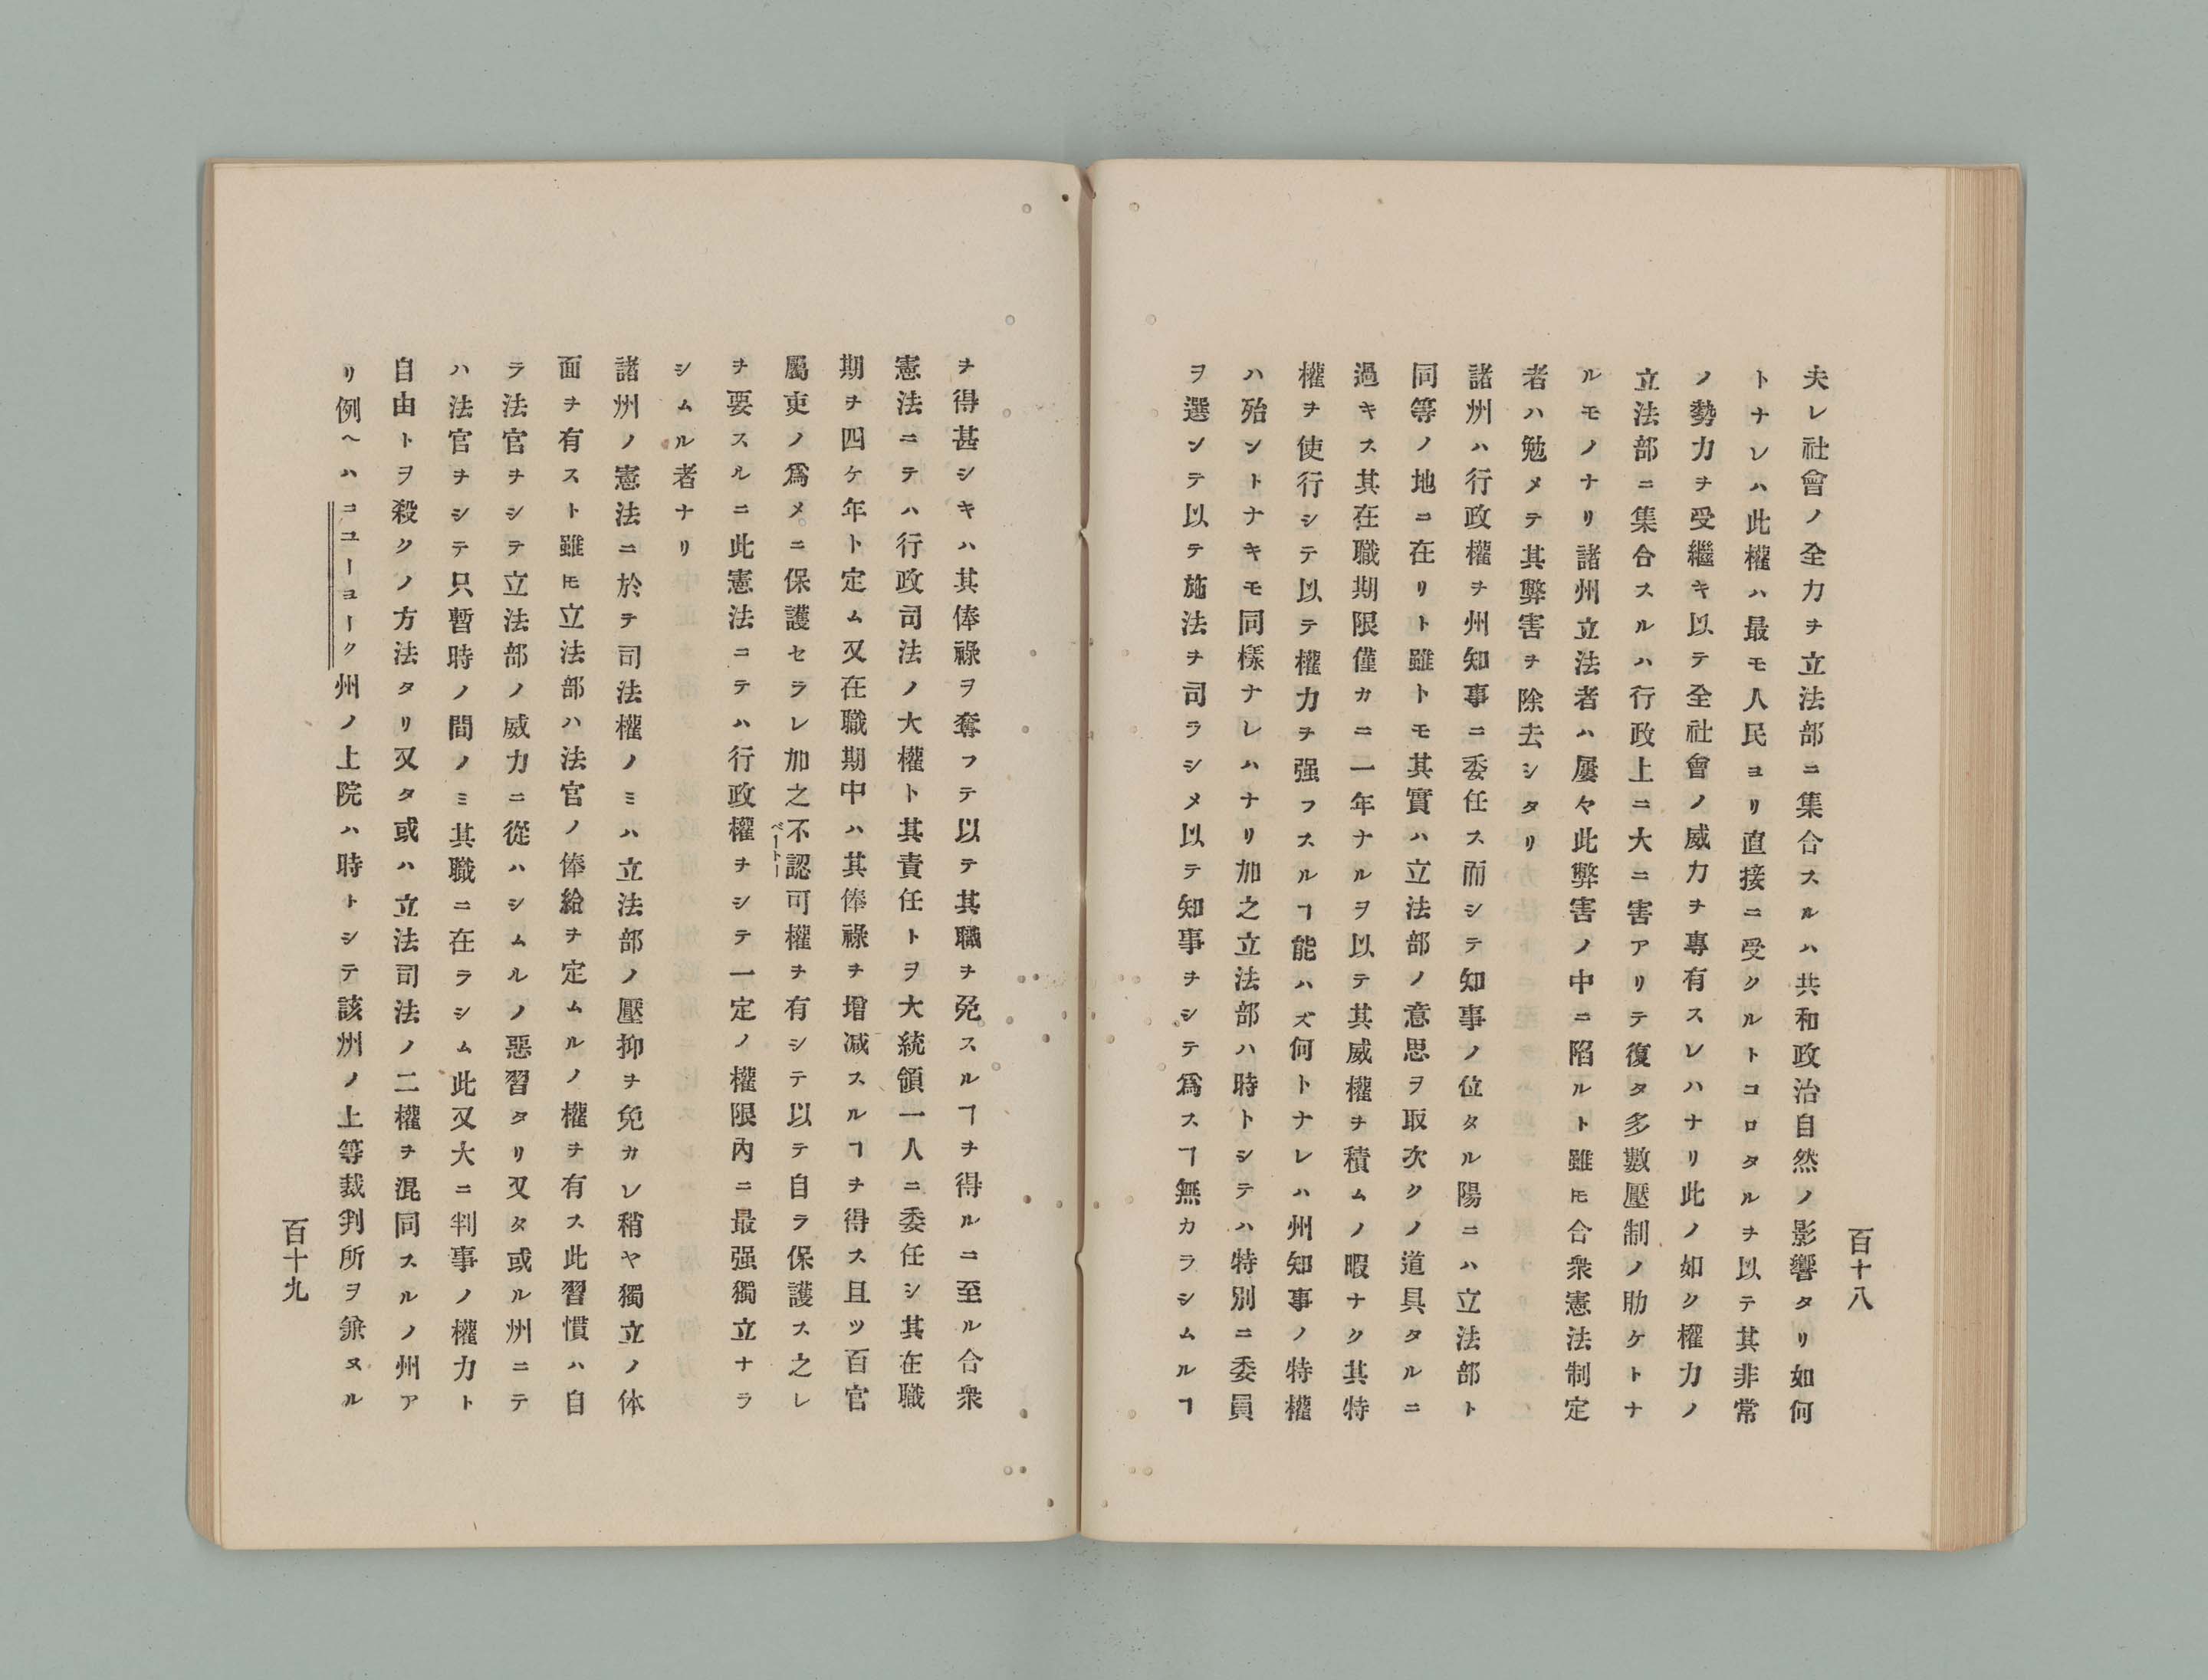 百十八
夫レ社會ノ全力ヲ立法部ニ集合スルハ共和政治自然ノ影響タリ如何
トナレハ此權ハ最モ人民ヨリ直接ニ受クルトコロタルヲ以テ其非常
ノ勢力ヲ受繼キ以テ全社會ノ威力ヲ專有スレハナリ此ノ如ク權力ノ
立法部ニ集合スルハ行政上ニ大ニ害アリテ復タ多數壓制ノ助ケトナ
ルモノナリ諸州立法者ハ屢々此弊害ノ中ニ陷ルト雖𪜈合衆憲法制定
者ハ勉メテ其弊害ヲ除去シタリ
諸州ハ行政權ヲ州知事ニ委任ス而シテ知事ノ位タル陽ニハ立法部ト
同等ノ地ニ在リト雖トモ其實ハ立法部ノ意思ヲ取次クノ道具タルニ
過キス其在職期限僅カニ一年ナルヲ以テ其威權ヲ積ムノ暇ナク其特
權ヲ使行シテ以テ權力ヲ强フスルヿ能ハズ何トナレハ州知事ノ特權
ハ殆ントナキモ同樣ナレハナリ加之立法部ハ時トシテハ特別ニ委員
ヲ選ンテ以テ施法ヲ司ラシメ以テ知事ヲシテ爲スヿ無カラシムルヿ
ヲ得甚シキハ其俸祿ヲ奪フテ以テ其職ヲ免スルヿヲ得ルニ至ル合衆
憲法ニテハ行政司法ノ大權ト其責任トヲ大統領一人ニ委任シ其在職
期ヲ四ケ年ト定ム又在職期中ハ其俸祿ヲ增减スルヿヲ得ス且ツ百官
屬吏ノ爲メニ保護セラレ加之不認可權ヲ有シテ以テ自ラ保護ス之レ
ベートー
ヲ要スルニ此憲法ニテハ行政權ヲシテ一定ノ權限內ニ最强獨立ナラ
シムル者ナリ
諸州ノ憲法ニ於テ司法權ノミハ立法部ノ壓抑ヲ免カレ稍ヤ獨立ノ体
面ヲ有スト雖𪜈立法部ハ法官ノ俸給ヲ定ムルノ權ヲ有ス此習慣ハ自
ラ法官ヲシテ立法部ノ威力ニ從ハシムルノ惡習タリ又タ或ル州ニテ
ハ法官ヲシテ只暫時ノ間ノミ其職ニ在ラシム此又大ニ判事ノ權力ト
自由トヲ殺クノ方法タリ又タ或ハ立法司法ノ二權ヲ混同スルノ州ア
リ例ヘハニユーヨーク州ノ上院ハ時トシテ該州ノ上等裁判所ヲ兼ヌル
百十九